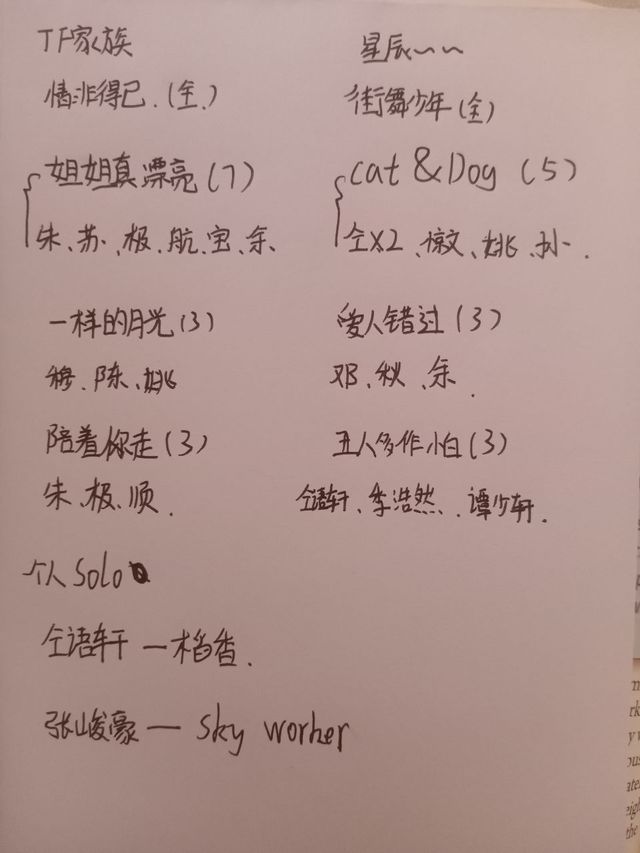 TF家族
情非得已.(全.)
姐姐真漂亮(7)
朱、苏、极、航、宝、余、
一样的月光(3)
穆、陈、姚
陪着你走(3)
朱、极、顺.
星辰~~
街舞少年(全)
cat & Dog (5)
仝X2、墩文、姚、孙.
爱人错过(3)
邓、秋、余.
五人多作小白(3)
仝语轩、季浩然、谭少轩.
个人Solo
仝语轩—稻香.
张峻豪— sky worker